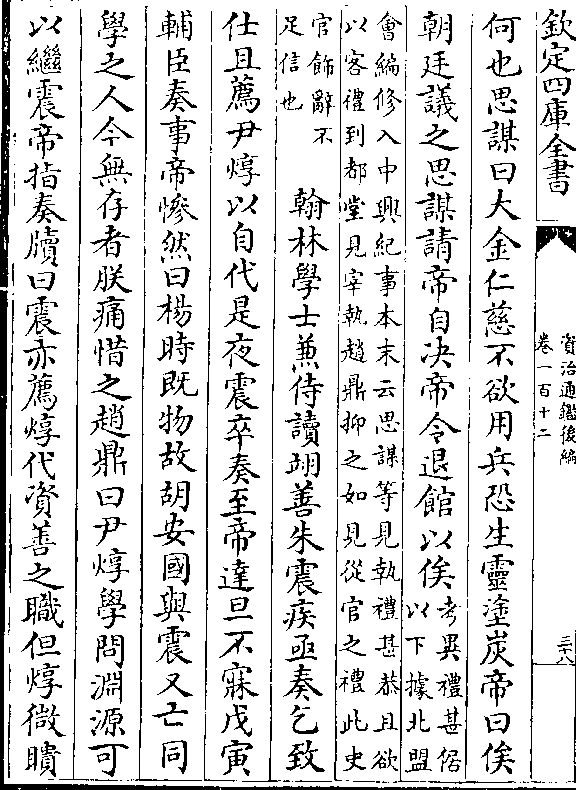 欽定四庫全書
資治通鑑後編
卷一百十二
三十八
何也思謀曰大金仁慈不欲用兵恐生靈塗炭帝曰俟
朝廷議之思謀請帝自决帝令退館以俟考異禮甚倨
以下據北盟
會編修入中興紀事本末云思謀等見執禮甚恭且欲
以客禮到都堂見宰執趙鼎抑之如見從官之禮此史
官飾辭不
足信也
翰林學士兼侍讀翊善朱震疾亟奏乞致
仕且薦尹焞以自代是夜震卒奏至帝達旦不寐戊寅
輔臣奏事帝慘然曰楊時既物故胡安國與震又亡同
學之人今無存者朕痛惜之趙鼎曰尹焞學問淵源可
以繼震帝指奏牘曰震亦薦焞代資善之職但焞微瞶